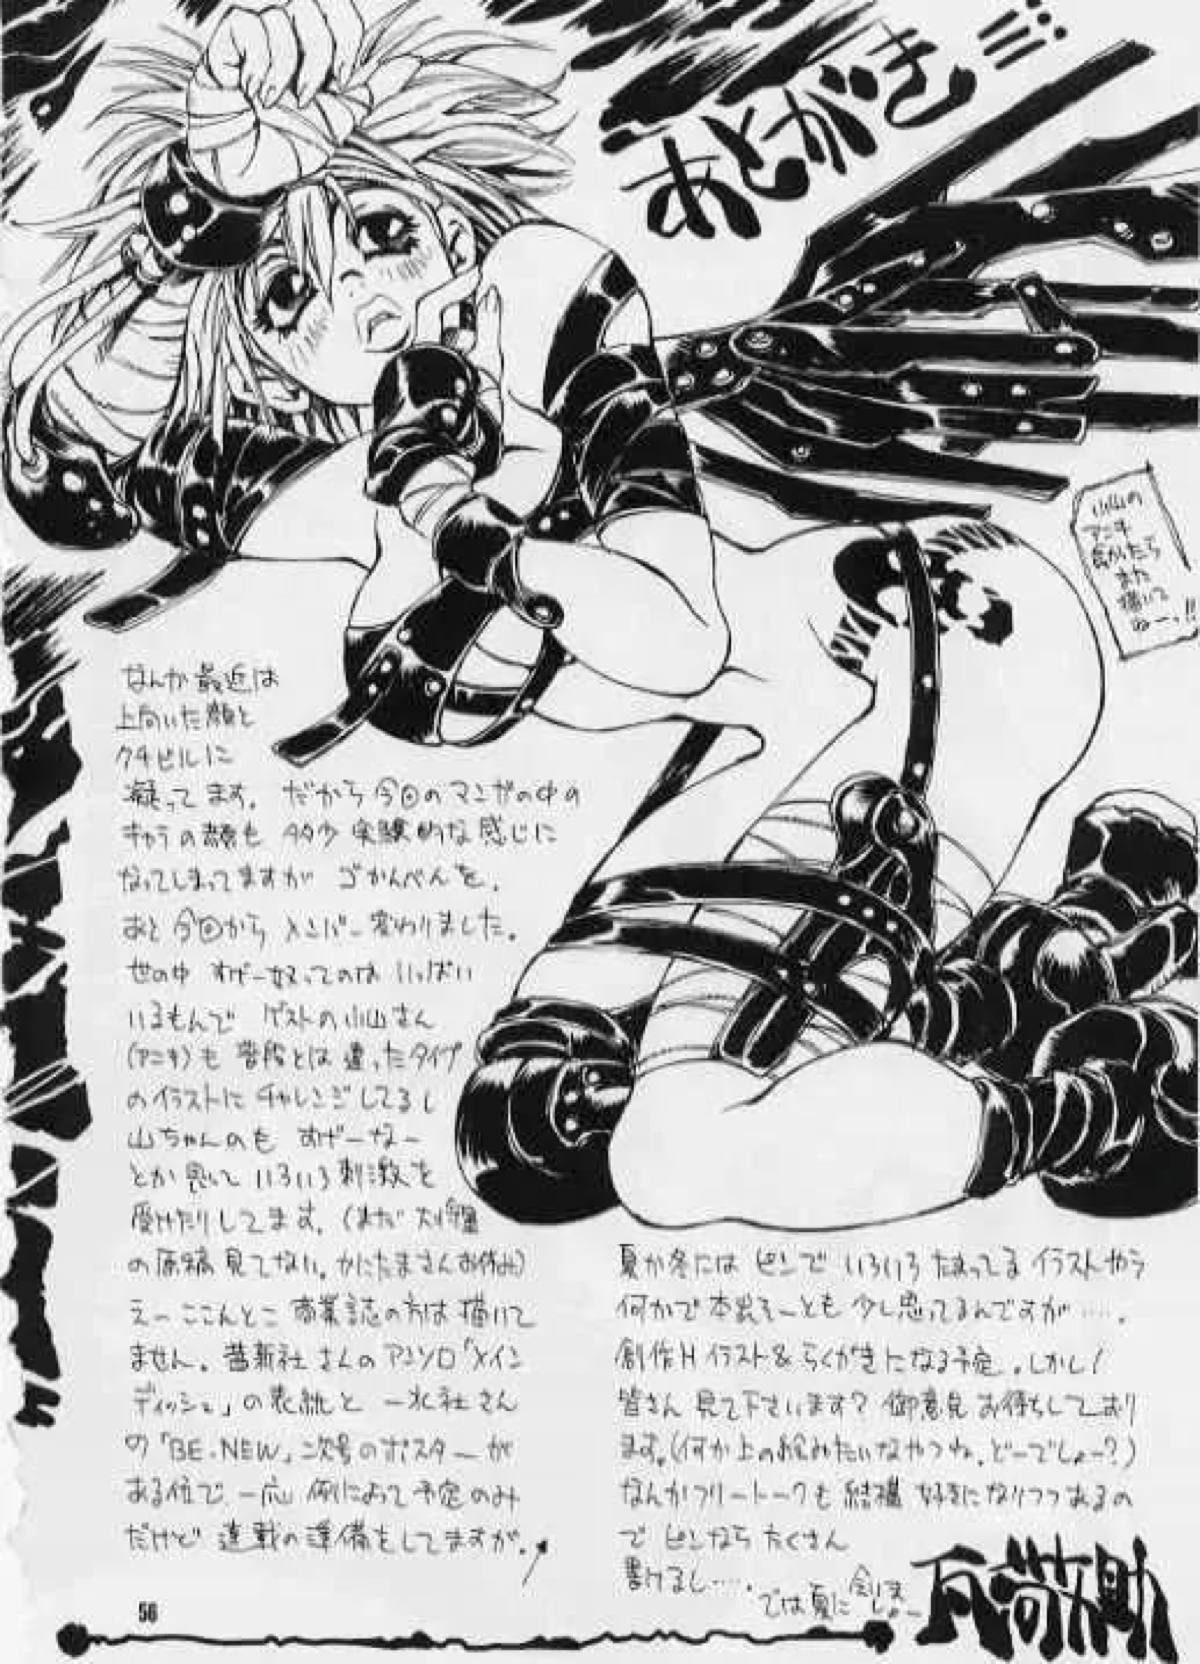 あとがき…!!
小山の
アニキ
良かったら
また
描いて
ねーっ!!
なんか最近は
上向いた顔と
クチビルに
凝ってます。だから今回のマンガの中の
キャラの顔も 多少実験的な感じに
なってしまってますが ゴかんべんを。
あと今回から メンバー変わりました。
世の中 すげー奴ってのは いっぱい
いるもんで ゲストの小山さん
(アニキ)も普段とは違ったタイプ
のイラストにチャレンジしてるし
山ちゃんのも すげーなー
とか思って いろいろ刺激を
受けたりしてます。(まだ 大将
の原稿見てない。かにたまさんお休み)
えーここんとこ 商業誌の方は描いて
ません。蒼新社さんのアンソロ「メイン
ディッシュ」の表紙と 一水社さん
の「BE.NEW」二次号のポスターが
ある位で 一応 例によって予定のみ
だけど 連載の準備をしてますが。
夏か冬には ピンで いろいろたまってる イラストやら
何かで本出そーとも 少し思ってるんですが……。
創作H イラスト&らくがきになる予定。しかし!
皆さん 見て下さいます? 御意見お待ちしており
ます。(何か上の絵みたいなやつね。どーでしょー?)
なんかフリートークも 結構 好きになりつつあるの
で ピンなら たくさん
書けるし……。
では夏に 会いま
しょー
56